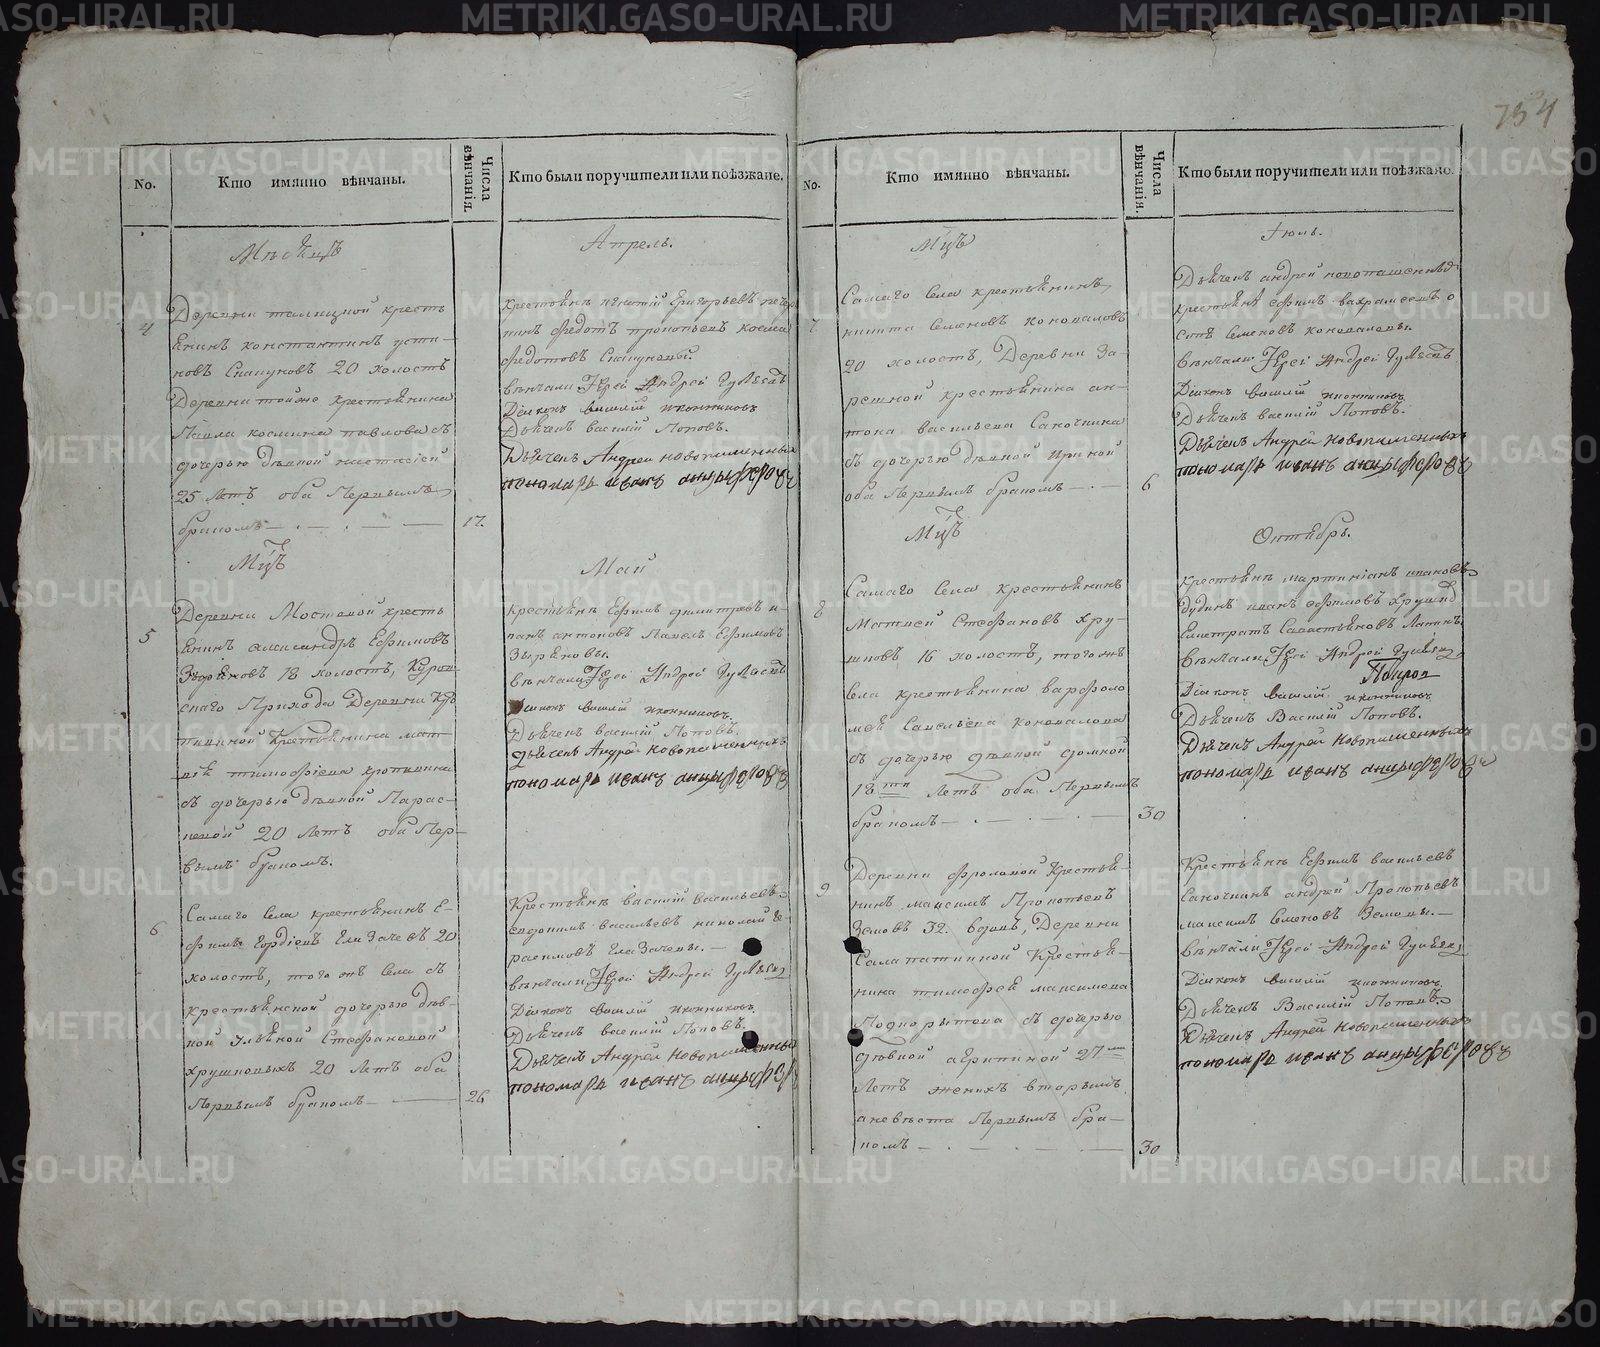 754
No.
Кто имянно вѣнчаны.
Числа вѣнчанія.
Кто были поручители или поѣзжане.
Мѣсяцъ
Апрель.
4
Деревни
кресть
янинъ константинъ усти-
новъ 20 холостъ
Деревни тойже крестьянина
Павла космина павлова съ
дочерью дѣвкой настасіей
25 Летъ оба Первымъ
бракомъ
17.
федотъ прокопьевъ косма
федотовъ
вѣнчали Іерей Андрей
Діаконъ василій иконниковъ
Дьячекъ василій Поповъ.
Дьячекъ Андрей Новопашенныхъ
пономарь иванъ анцыферовъ
Мцъ
Май
5
Деревни Мостовой кресть
янинъ александръ Ефимовъ
Зыряновъ 18 холостъ,
скаго Прихода Деревни
крестьянина
тимофѣева
съ дочерью дѣвкой Парас-
кевой 20 Летъ оба Пер-
вымъ бракомъ.
крестьянъ Ефимъ дмитревъ и-
ванъ антоновъ Павелъ Ефимовъ
Зыряновы.
вѣнчали Іерей Андрей
Діаконъ василій иконниковъ.
Дьячекъ василій Поповъ.
Дьячекъ Андрей Новопашенныхъ
пономарь иванъ анцыферовъ
6
Самаго села крестьянинъ Е-
фимъ 20
холостъ, того жъ села съ
крестьянской дочерью дѣв-
кой Ульяной Стефановой
хрушковыхъ 20 Летъ оба
Первымъ бракомъ
26
Крестьянъ василій васильевъ
васильевъ николай
вѣнчали Іерей Андрей
Діаконъ василій иконниковъ
Дьячекъ василій Поповъ.
Дьячекъ Андрей Новопашенныхъ
пономарь иванъ
No.
Кто имянно вѣнчаны.
Числа вѣнчанія.
Кто были поручители или поѣзжане.
Мцъ
Іюль.
7
Самаго села крестьянинъ
никита семеновъ коноваловъ
20 холостъ, Деревни За-
речной крестьянина ан-
тона васильева Саночкина
съ дочерью дѣвкой ириной
оба Первымъ бракомъ
6
Дьячекъ андрей новопашенныхъ
крестьянъ ефимъ вахрамеевъ о
сипъ семеновъ коноваловы.
вѣнчали Іерей Андрей
Діаконъ василій иконниковъ
Дьячекъ василій Поповъ.
Дьячекъ Андрей Новопашенныхъ
пономарь иванъ анцыферовъ
Мцъ
Октябрь.
8
Самаго села крестьянинъ
Матвей Стефановъ хру-
шковъ 16 холостъ, того жъ
села крестьянина варфоло
мея Савельева коновалова
съ дочерью дѣвкой домной
18ти Летъ оба Первымъ
бракомъ
30
крестьянъ мартиніанъ ивановъ
иванъ ефимовъ
вѣнчали Іерей Андрей
Діаконъ василій иконниковъ
Дьячекъ Василій Поповъ.
Дьячекъ Андрей Новопашенныхъ
пономарь иванъ анцыферовъ
9
Деревни фроловой Крестья-
нинъ максимъ Прокопьевъ
Земовъ 32. вдовъ, Деревни
Салапаткиной Крестья-
нина тимофея максимова
Подкорытова съ дочерью
дѣвкой 27ми
Летъ женихъ вторымъ
аневѣста Первымъ бра-
комъ
30
Крестьянъ Ефимъ васильевъ
Саночкинъ андрей Прокопьевъ
максимъ семеновъ Земовы.
вѣнчали Іерей Андрей
Діаконъ василій иконниковъ.
Дьячекъ Василій Поповъ.
Дьячекъ Андрей Новопашенныхъ
пономарь иванъ анцыферовъ
METRIKI.GASO-URAL.RU